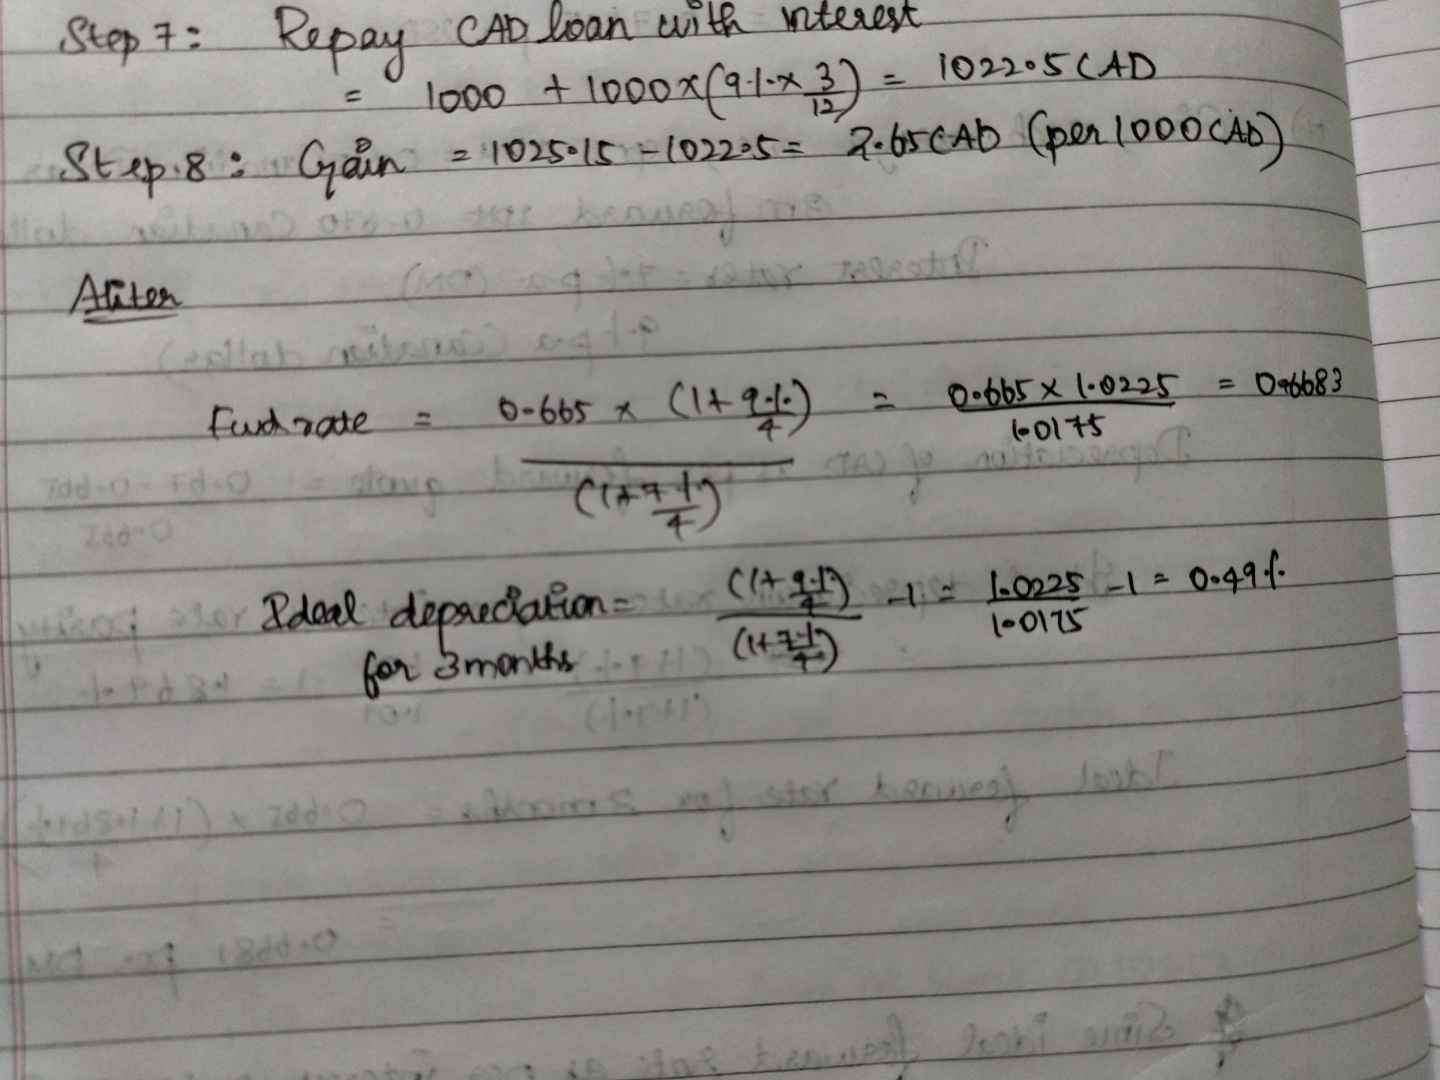 Step 7: Repay CAD loan with interest
= 1000 + 1000x(9%x 3/12) = 1022.5 CAD
Step.8: Gain = 1025.15 - 1022.5 = 2.65 CAD (per 1000 CAD)
Aliter
Fwd rate = 0.665 x (1+ 9%/4) / (1+ 7%/4) = 0.665 x 1.0225 / 1.0175 = 0.6683
Ideal depreciation = (1+ 9%/4) / (1+ 7%/4) -1 = 1.0225 / 1.0175 -1 = 0.49%
for 3 months